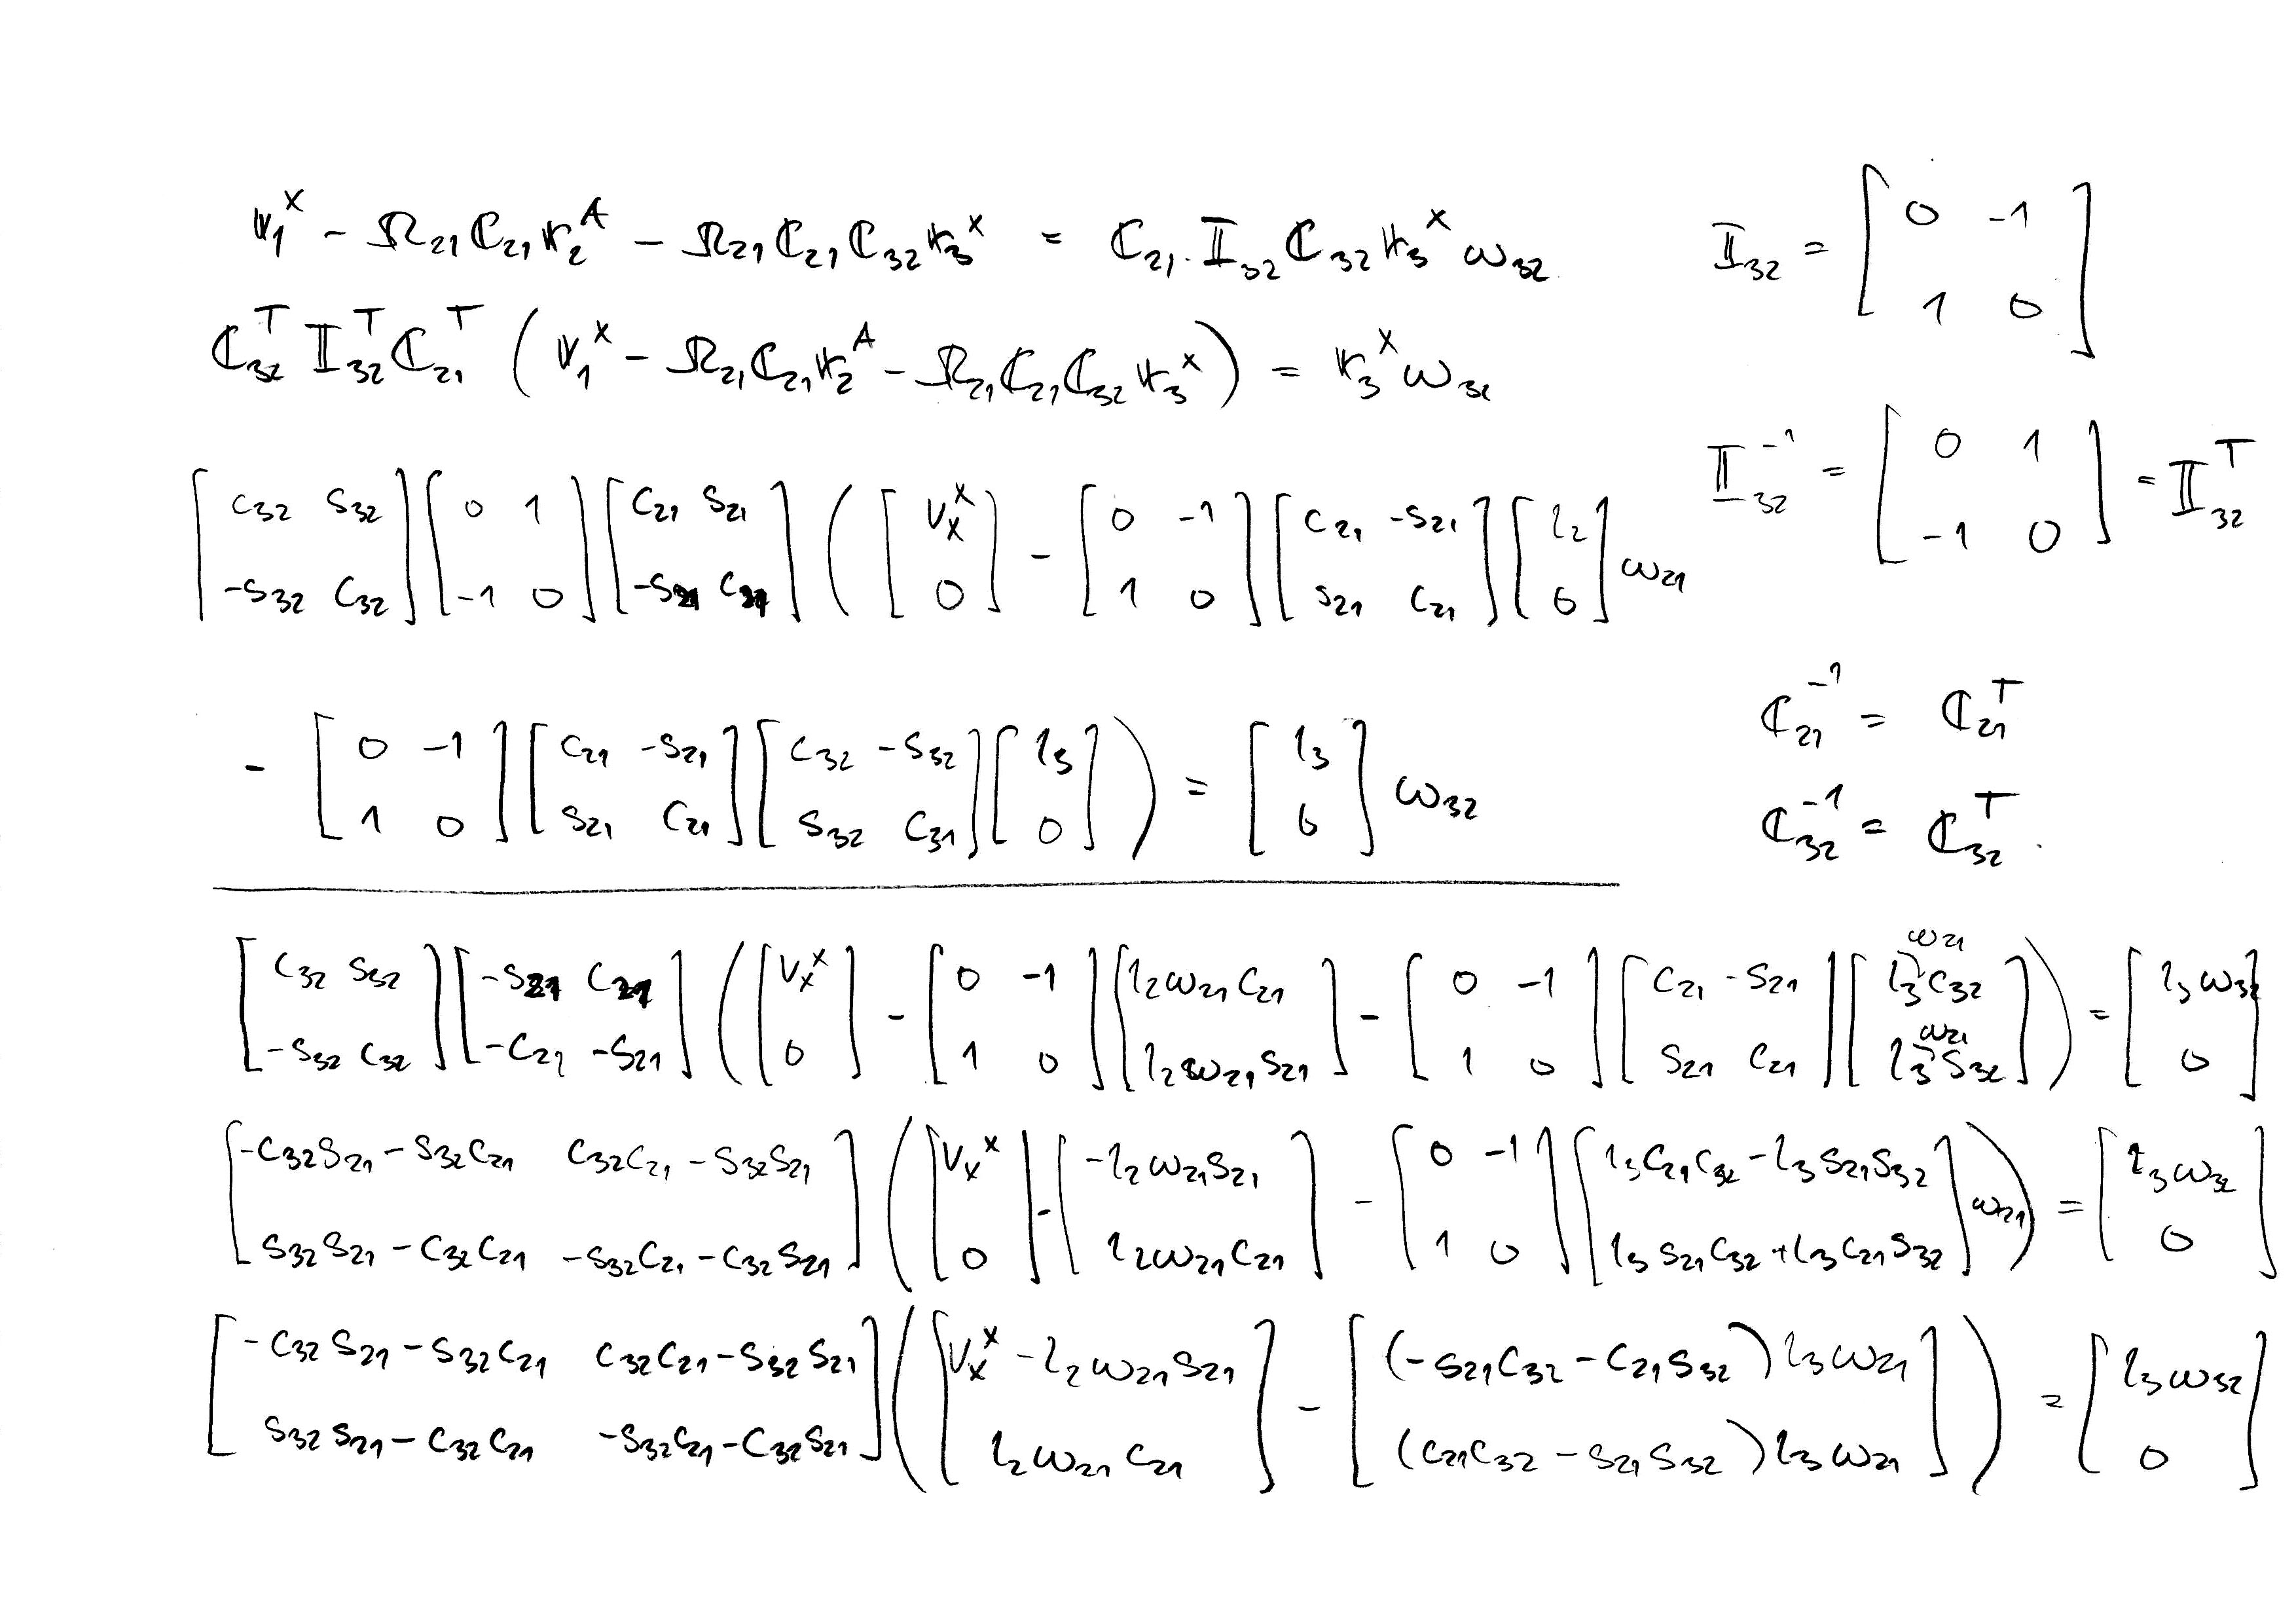 𝕧₁ˣ - Ω₂₁ ℂ₂₁ 𝕣₂ᴬ - Ω₂₁ ℂ₂₁ ℂ₃₂ 𝕣₃ˣ = ℂ₂₁ · 𝕀₃₂ ℂ₃₂ 𝕣₃ˣ ω₃₂
𝕀₃₂ = [0 -1; 1 0]
ℂ₃₂ᵀ 𝕀₃₂ᵀ ℂ₂₁ᵀ (𝕧₁ˣ - Ω₂₁ ℂ₂₁ 𝕣₂ᴬ - Ω₂₁ ℂ₂₁ ℂ₃₂ 𝕣₃ˣ) = 𝕣₃ˣ ω₃₂
𝕀₃₂⁻¹ = [0 1; -1 0] = 𝕀₃₂ᵀ
[c₃₂ s₃₂; -s₃₂ c₃₂] [0 1; -1 0] [c₂₁ s₂₁; -s₂₁ c₂₁] ([vₓˣ; 0] - [0 -1; 1 0] [c₂₁ -s₂₁; s₂₁ c₂₁] [l₂; 0] ω₂₁
ℂ₂₁⁻¹ = ℂ₂₁ᵀ
- [0 -1; 1 0] [c₂₁ -s₂₁; s₂₁ c₂₁] [c₃₂ -s₃₂; s₃₂ c₃₁] [l₃; 0]) = [l₃; 0] ω₃₂
ℂ₃₂⁻¹ = ℂ₃₂ᵀ
[c₃₂ s₃₂; -s₃₂ c₃₂] [-s₂₁ c₂₁; -c₂₁ -s₂₁] ([vₓˣ; 0] - [0 -1; 1 0] [l₂ω₂₁c₂₁; l₂ω₂₁s₂₁] - [0 -1; 1 0] [c₂₁ -s₂₁; s₂₁ c₂₁] [l₃ω₂₁c₃₂; l₃ω₂₁s₃₂]) = [l₃ω₃₂; 0]
[-c₃₂s₂₁ - s₃₂c₂₁ c₃₂c₂₁ - s₃₂s₂₁; s₃₂s₂₁ - c₃₂c₂₁ -s₃₂c₂₁ - c₃₂s₂₁] ([vₓˣ; 0] - [-l₂ω₂₁s₂₁; l₂ω₂₁c₂₁] - [0 -1; 1 0] [l₃c₂₁c₃₂ - l₃s₂₁s₃₂; l₃s₂₁c₃₂ + l₃c₂₁s₃₂] ω₂₁) = [l₃ω₃₂; 0]
[-c₃₂s₂₁ - s₃₂c₂₁ c₃₂c₂₁ - s₃₂s₂₁; s₃₂s₂₁ - c₃₂c₂₁ -s₃₂c₂₁ - c₃₂s₂₁] ([vₓˣ - l₂ω₂₁s₂₁; l₂ω₂₁c₂₁] - [(-s₂₁c₃₂ - c₂₁s₃₂) l₃ω₂₁; (c₂₁c₃₂ - s₂₁s₃₂) l₃ω₂₁]) = [l₃ω₃₂; 0]